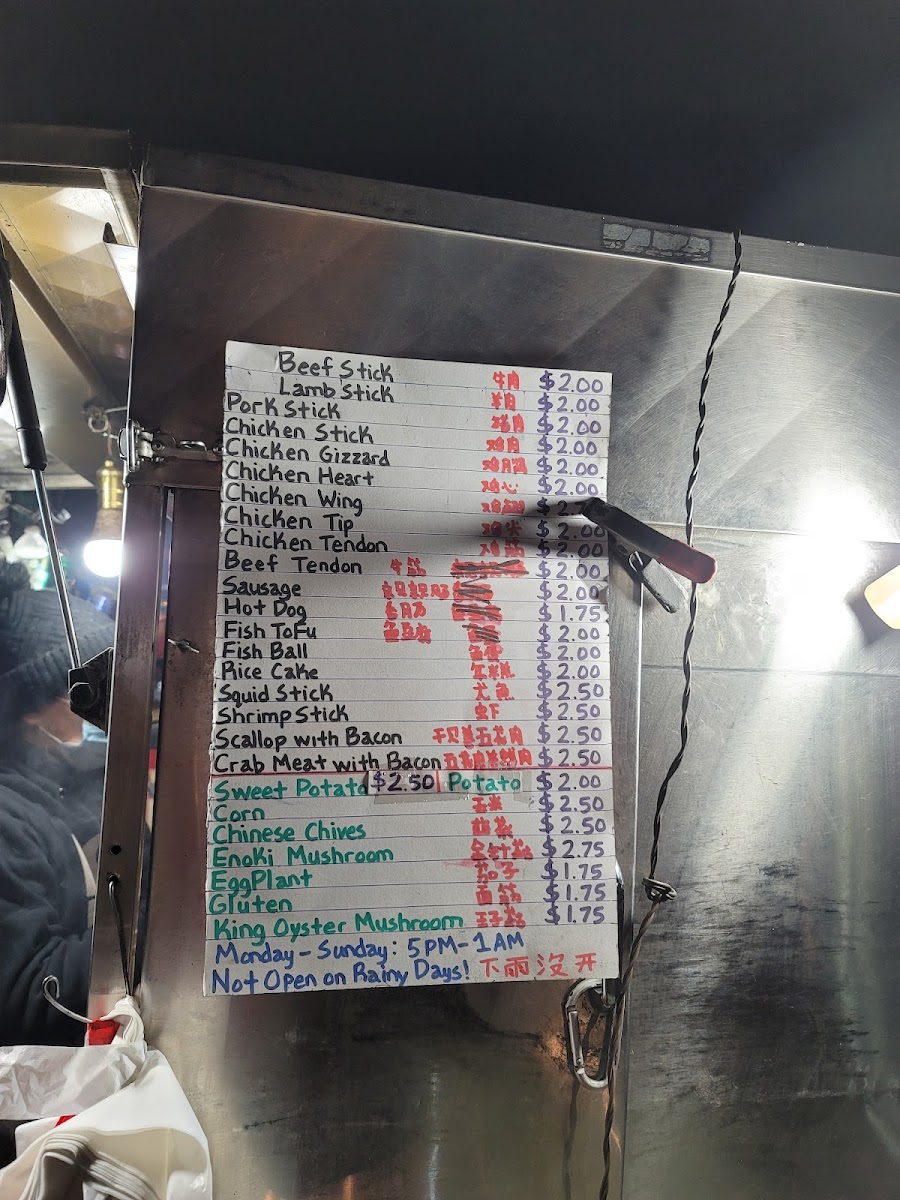 Beef Stick 牛肉 $2.00
Lamb Stick 羊肉 $2.00
Pork Stick 猪肉 $2.00
Chicken Stick 鸡肉 $2.00
Chicken Gizzard $2.00
Chicken Heart 鸡心 $2.00
Chicken Wing 鸡翅
Chicken Tip 鸡尖 $2.00
Chicken Tendon 鸡筋 $2.00
Beef Tendon 牛筋 $2.00
Sausage $2.00
Hot Dog $1.75
Fish ToFu 鱼豆腐 $2.00
Fish Ball 鱼蛋 $2.00
Rice Cake 年糕 $2.00
Squid Stick 尤鱼 $2.50
Shrimp Stick 虾 $2.50
Scallop with Bacon $2.50
Crab Meat with Bacon $2.50
Sweet Potato $2.50 Potato $2.00
Corn 玉米 $2.50
Chinese Chives 韭菜 $2.50
Enoki Mushroom 金针菇 $2.75
EggPlant 茄子 $1.75
Gluten 面筋 $1.75
King Oyster Mushroom 王子菇 $1.75
Monday - Sunday: 5PM - 1AM
Not Open on Rainy Days! 下雨沒开